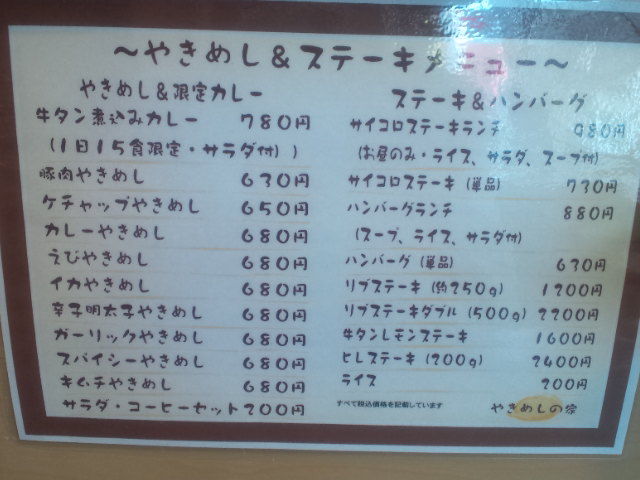 ～やきめし＆ステーキメニュー～
やきめし＆限定カレー
牛タン煮込みカレー 780円
(1日15食限定・サラダ付)
豚肉やきめし 630円
ケチャップやきめし 650円
カレーやきめし 680円
えびやきめし 680円
イカやきめし 680円
辛子明太子やきめし 680円
ガーリックやきめし 680円
スパイシーやきめし 680円
キムチやきめし 680円
サラダ・コーヒーセット 200円
ステーキ＆ハンバーグ
サイコロステーキランチ 980円
(お昼のみ・ライス、サラダ、スープ付)
サイコロステーキ (単品) 730円
ハンバーグランチ 880円
(スープ、ライス、サラダ付)
ハンバーグ (単品) 630円
リブステーキ (約250g) 1200円
リブステーキダブル (500g) 2200円
牛タンレモンステーキ 1600円
ヒレステーキ (200g) 2400円
ライス 200円
すべて税込価格を記載しています
やきめしの家